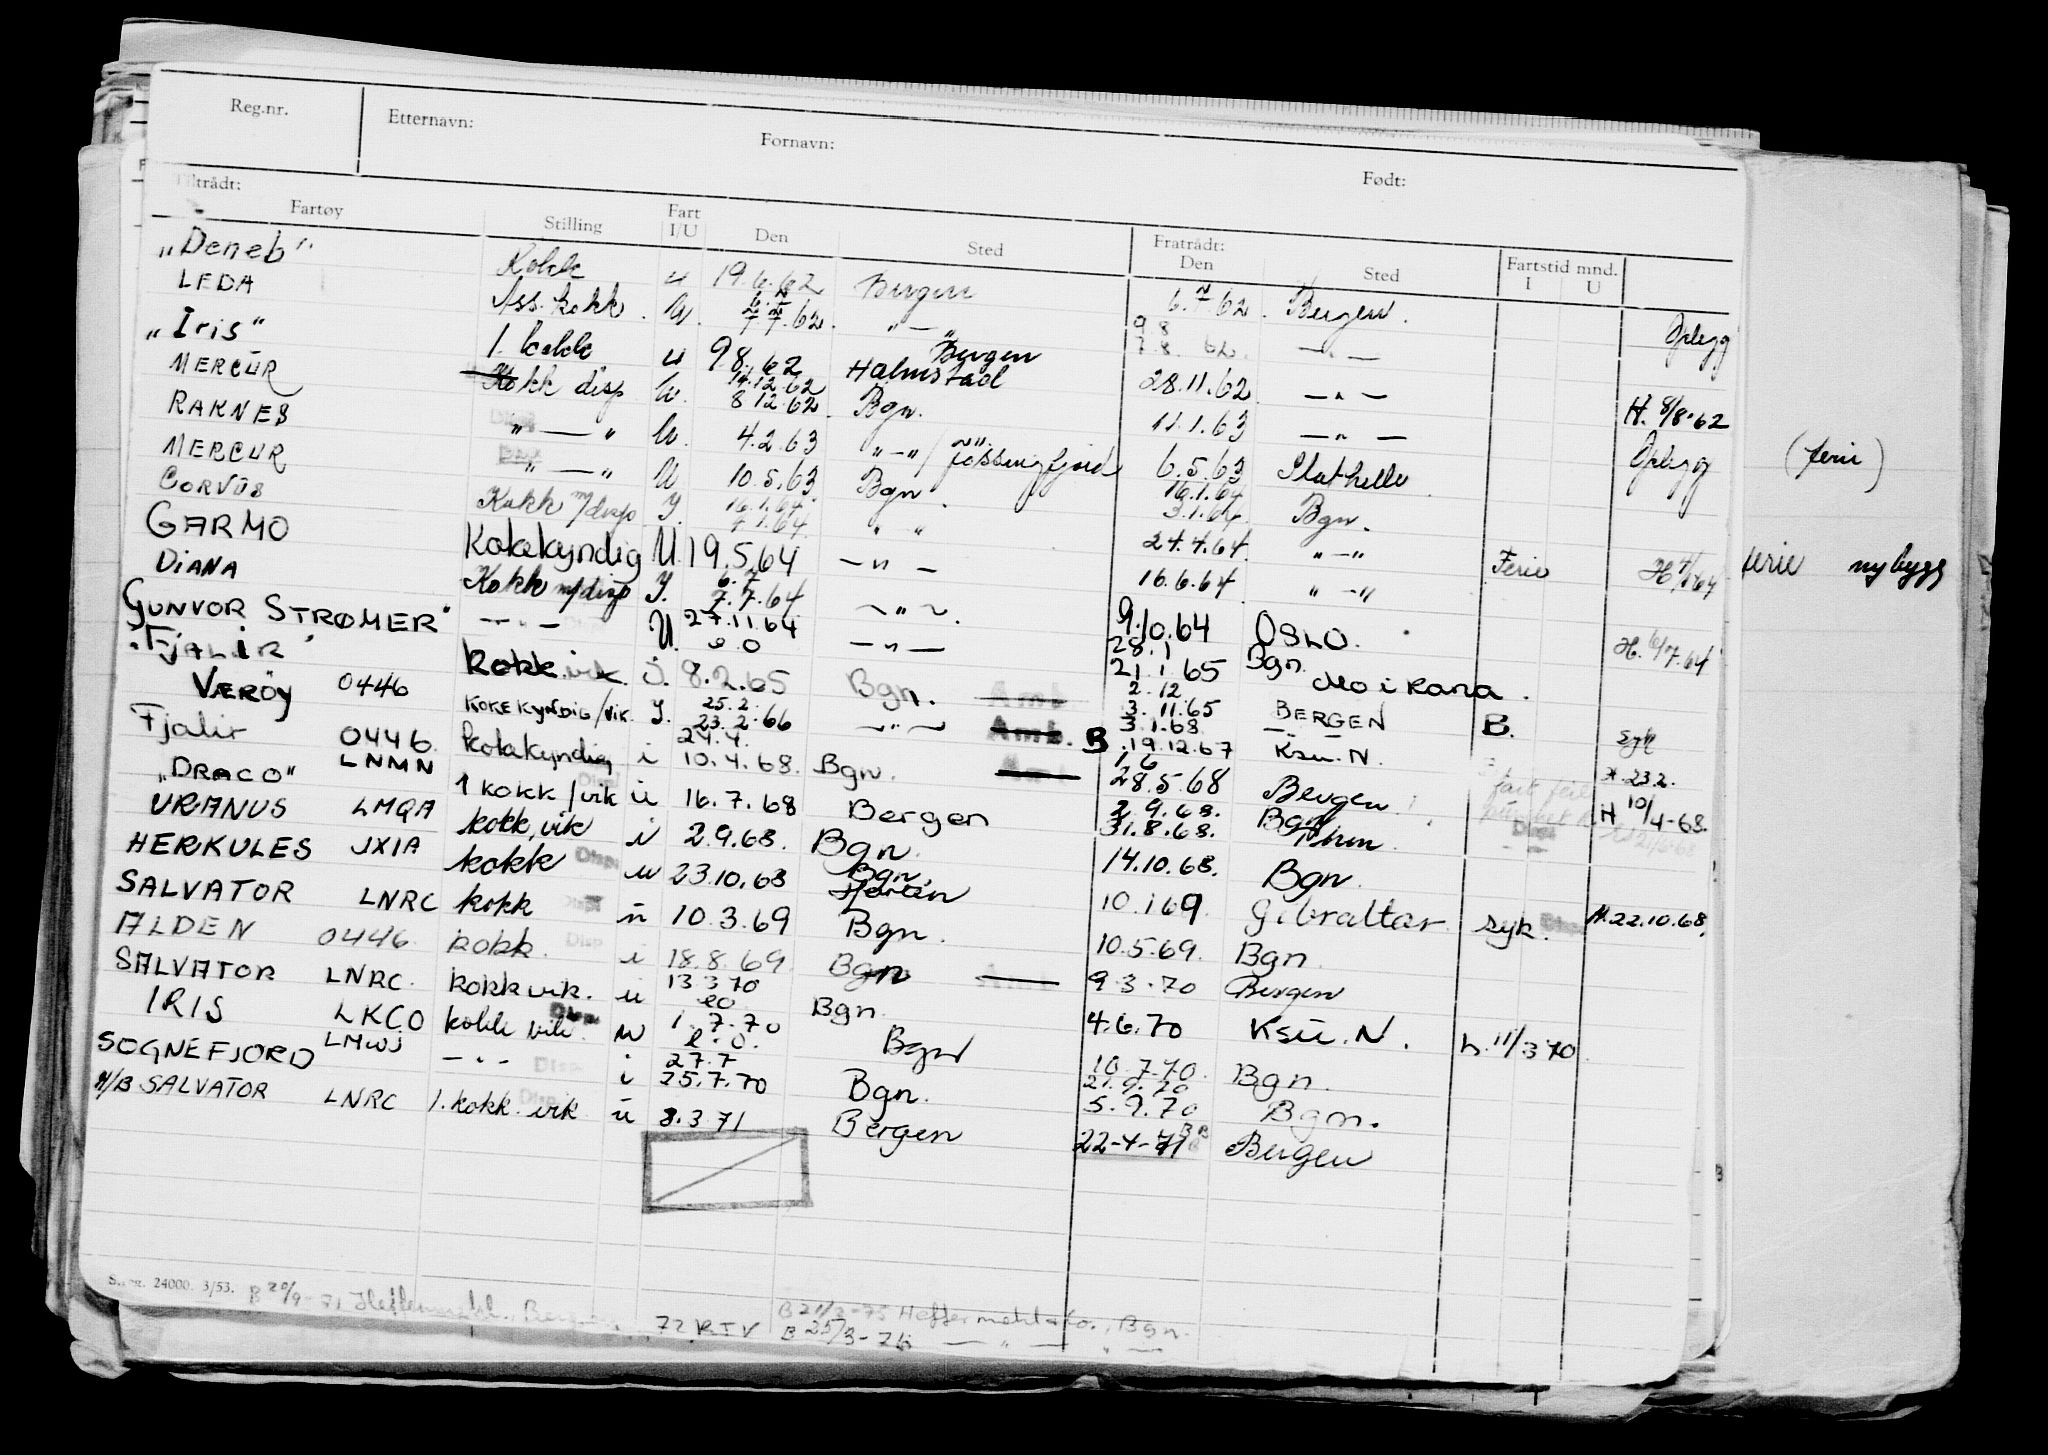 Reg.nr. Etternavn: Fornavn: Født:
Tiltrådt: Fratrådt:
Fartøy Stilling Fart I/U Den Sted Den Sted Fartstid mnd. I U
„Deneb" Kokk u 19.6.62 Bergen 6.7.62 Bergen. Oplegg
LEDA Ass. kokk u. 7.7.62 „ — „ 9 8 7.8. 62. — „ —
„Iris" 1. kokk u 9.8.62 Bergen Halmstad 28.11.62 — „ — H. 8/8-62
MERCUR Kokk disp u. 14.12.62 8.12.62 Bgn. 11.1.63 — „ — Oplegg (ferie)
RAKNES „ — „ U. 4.2.63 „ — „ / Jøssingfjord 6.5.63 Stathelle
MERCUR „ — „ U 10.5.63 Bgn. 16.1.64 3.1.64 Bgn.
CORVUS Kokk m/disp I. 16.1.64 7.1.64 „ „ 24.4.64 „ — „ Ferie ferie nybygg
GARMO Kokkekyndig U 19.5.64 — „ — 16.6.64 „ — „
DIANA Kokk m/disp I. 6.7 7.7.64 — „ — 9.10.64 OSLO. H. 6/7.64
GUNVOR STRØMER" — „ — U. 27.11.64 e o — „ — 28.1 21.1.65 Bgn. Mo i Rana.
"FJALIR" kokk vik. i. 8.2.65 Bgn. Amb 2.12 3.11.65 BERGEN B. syk
VÆRØY 0446 KOKEKYNDIG/vik. I. 25.2. 23.2.66 — „ — Amb. B 3.1.68 19.12.67 Ksu. N. H. 23.2.
Fjalir 0446 kokkekyndig i 24.4. 10.4.68. Bgn. 1.6 28.5.68 Bergen H 10/4-68.
„DRACO" LNMN 1 kokk/vik u 16.7.68 Bergen 2.9.68. 31.8.68. Bgn
URANUS LMQA kokk, vik i 2.9.68. Bgn. 14.10.68. Bgn.
HERKULES JXIA kokk Disp. u 23.10.68 Bgn. Horten 10.1 69 Gibraltar syk. H.22.10.68.
SALVATOR LNRC kokk Disp u 10.3.69 Bgn. 10.5.69. Bgn.
ALDEN 0446 kokk. Disp i 18.8.69 Bgn 9.3.70 Bergen
SALVATOR LNRC. kokk vik. u 13 3 70 eo Bgn. 4.6.70 Ksu. N. h. 11/3 70
IRIS LKCO kokk vik. Disp. u 1.7.70 e.o. Bgn 10.7.70. Bgn.
SOGNEFJORD LMWJ — „ — Disp i 27.7 25.7.70 Bgn. 21.9.70 5.9.70 Bgn.
M/B SALVATOR LNRC 1. kokk. vik Disp u 8.3.71 Bergen 22-4-71 Bergen
24000. 3/53. B 20/9-71 72 RTV B 21/3-75 Heffermehl & Co., Bgn.
B 25/3-76 — „ — „ —